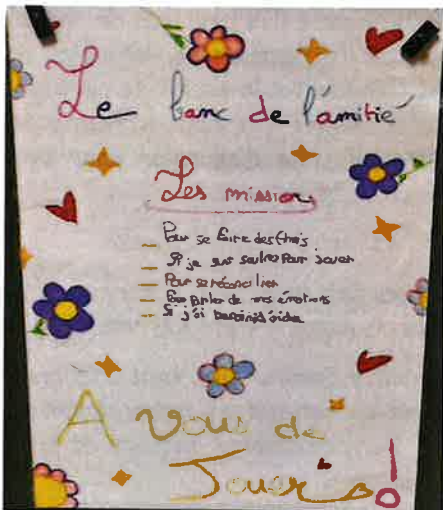 Le banc de l'amitié
Les missions
Pour se faire des
Si je suis seul Pour jouer
Pour se réconcilier
Pour Parler de mes émotions
Si j'ai besoin d'aide
A vous de
Jouer !